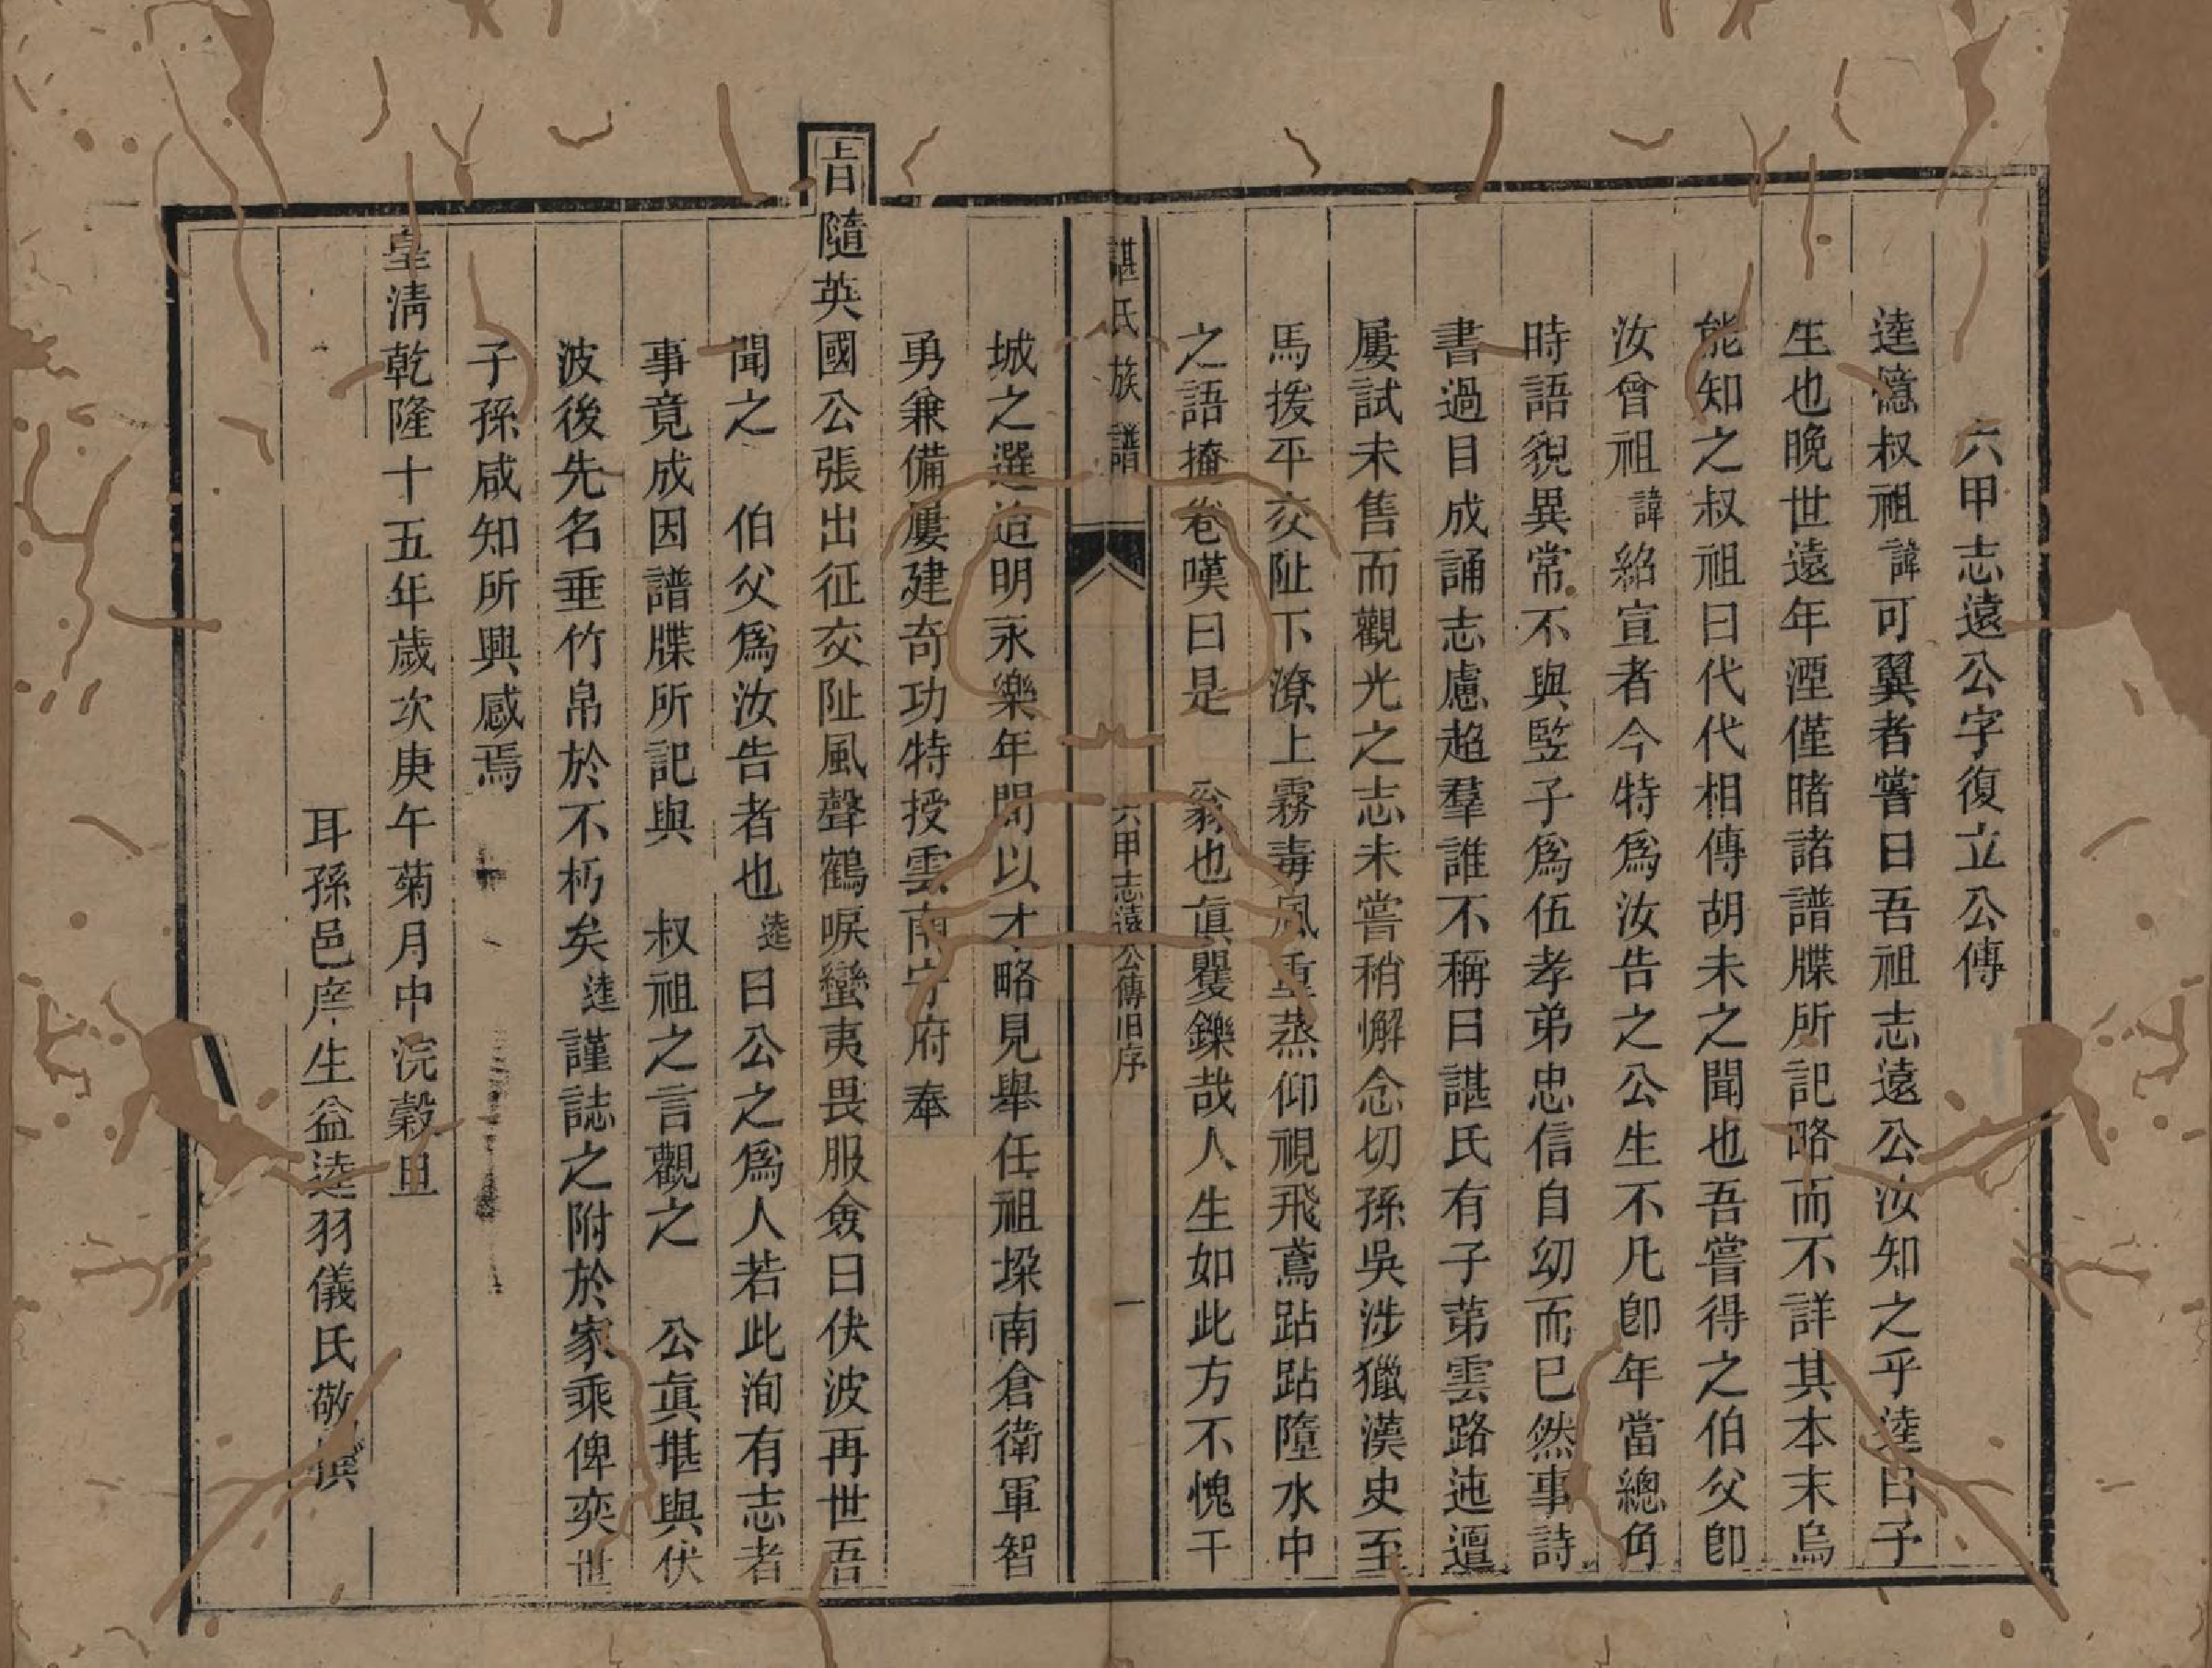 六甲志遠公字復立公傳
逵憶叔祖諱可翼者嘗曰吾祖志遠公汝知之乎逵曰予
生也晚世遠年湮僅睹諸譜牒所記略而不詳其本末烏
能知之叔祖曰代代相傳胡未之聞也吾嘗得之伯父卽
汝曾祖諱紹宣者今特爲汝告之公生不凡卽年當總角
時語貌異常不與竪子爲伍孝弟忠信自幼而已然事詩
書過目成誦志慮超羣誰不稱曰諶氏有子苐雲路迍邅
屢試未售而觀光之志未嘗稍懈念切孫吳涉獵漢史至
馬援平交阯下潦上霧毒風重蒸仰視飛鳶跕跕墮水中
之語掩卷嘆曰是 翁也眞矍鑠哉人生如此方不愧干
諶氏族譜 六甲志遠公傳旧序 一
城之選迨明永樂年間以才略見舉任祖垜南倉衛軍智
勇兼備屢建奇功特授雲南守府奉
旨隨英國公張出征交阯風聲鶴唳蠻夷畏服僉曰伏波再世吾
聞之 伯父爲汝告者也逵曰公之爲人若此洵有志者
事竟成因譜牒所記與 叔祖之言觀之 公眞堪與伏
波後先名垂竹帛於不朽矣逵謹誌之附於家乘俾奕世
子孫咸知所興感焉
皇淸乾隆十五年歲次庚午菊月中浣穀旦
耳孫邑庠生益逵羽儀氏敬撰